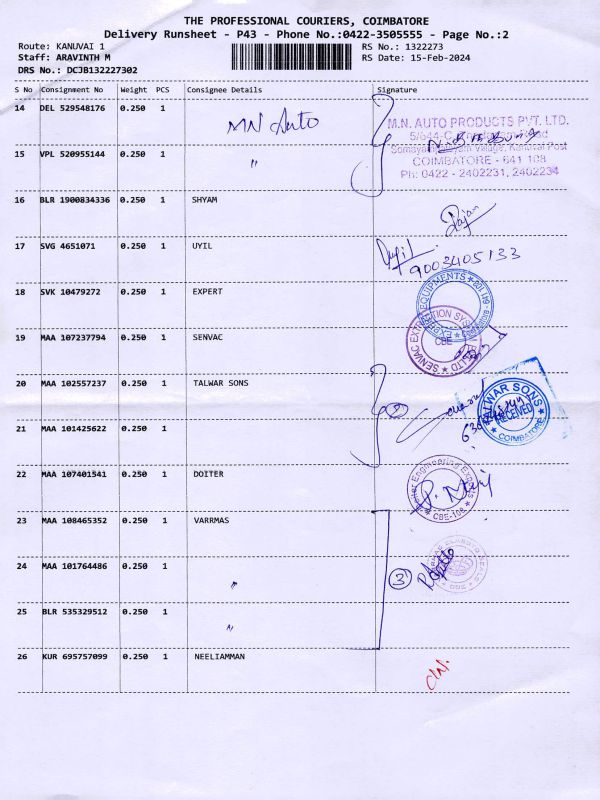 THE PROFESSIONAL COURIERS, COIMBATORE
Delivery Runsheet - P43 - Phone No.:0422-3505555 - Page No.:2
Route: KANUVAI 1
RS No.: 1322273
Staff: ARAVINTH M
RS Date: 15-Feb-2024
DRS No.: DCJB132227302
S No Consignment No Weight PCS Consignee Details Signature
14 DEL 529548176 0.250 1 MN Auto
M.N. AUTO PRODUCTS PVT. LTD.
15 VPL 520955144 0.250 1 "
COIMBATORE - 641 108
Ph: 0422 - 2402231, 2402234
16 BLR 1900834336 0.250 1 SHYAM Rajan
17 SVG 4651071 0.250 1 UYIL
9003405133
18 SVK 10479272 0.250 1 EXPERT
19 MAA 107237794 0.250 1 SENVAC
CBE
20 MAA 102557237 0.250 1 TALWAR SONS
2
TALWAR SONS
RECEIVED
COIMBATORE
21 MAA 101425622 0.250 1
22 MAA 107401541 0.250 1 DOITER
CBE-108
23 MAA 108465352 0.250 1 VARRMAS
24 MAA 101764486 0.250 1 "
3
25 BLR 535329512 0.250 1 "
26 KUR 695757099 0.250 1 NEELIAMMAN